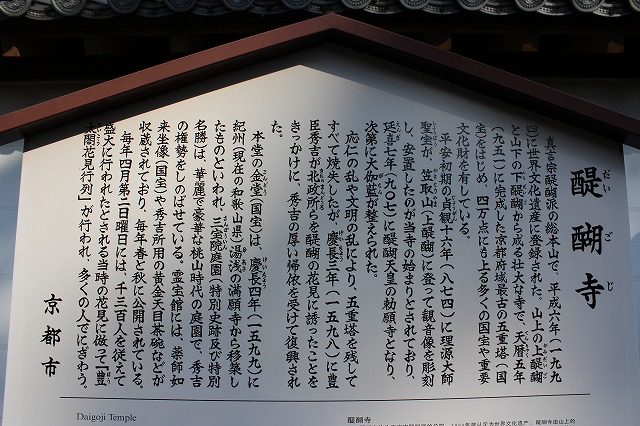 醍醐寺
だいごじ
真言宗醍醐派の総本山で、平成六年(一九九
四)に世界文化遺産に登録された。山上の上醍醐
と山下の下醍醐から成る壮大な寺で、天暦五年
(九五一)に完成した京都府域最古の五重塔(国
宝)をはじめ、四万点にも上る多くの国宝や重要
文化財を有している。
平安初期の貞観十六年(八七四)に理源大師
聖宝が、笠取山(上醍醐)に登って観音像を彫刻
し、安置したのが当寺の始まりとされており、
延喜七年(九〇七)に醍醐天皇の勅願寺となり、
次第に大伽藍が整えられた。
応仁の乱や文明の乱により、五重塔を残して
すべて焼失したが、慶長三年(一五九八)に豊
臣秀吉が北政所らを醍醐の花見に誘ったことを
きっかけに、秀吉の厚い帰依を受けて復興され
た。
本堂の金堂(国宝)は、慶長四年(一五九九)に
紀州(現在の和歌山県)湯浅の満願寺から移築し
たものといわれ、三宝院庭園(特別史跡及び特別
名勝)は、華麗で豪華な桃山時代の庭園で、秀吉
の権勢をしのばせている。霊宝館には、薬師如
来坐像(国宝)や秀吉所用の黄金天目茶碗などが
収蔵されており、毎年春と秋に公開されている。
毎年四月第二日曜日には、千三百人を従えて
盛大に行われたとされる当時の花見に倣って「豊
太閤花見行列」が行われ、多くの人でにぎわう。
京都市
Daigoji Temple
醍醐寺